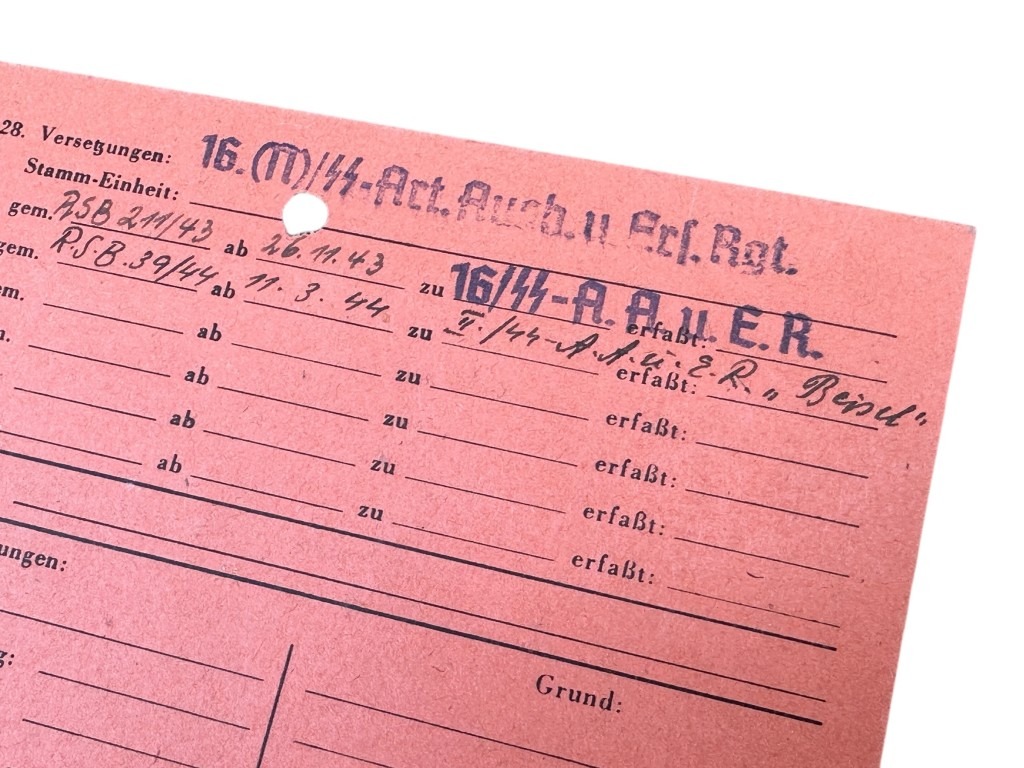 28. Versetzungen: 16.(II)/SS-Art. Ausb. u. Ers. Rgt.
Stamm-Einheit:
gem. RSB 211/43 ab 26.11.43 zu 16/SS-A. A. u. E. R. erfaßt:
gem. R.S.B. 39/44 ab 11. 3. 44 zu II./SS-A.A.u.E.R. „Beisel“ erfaßt:
em. ab zu erfaßt:
ab zu erfaßt:
ab zu erfaßt:
ab zu erfaßt:
ungen:
g:
Grund: